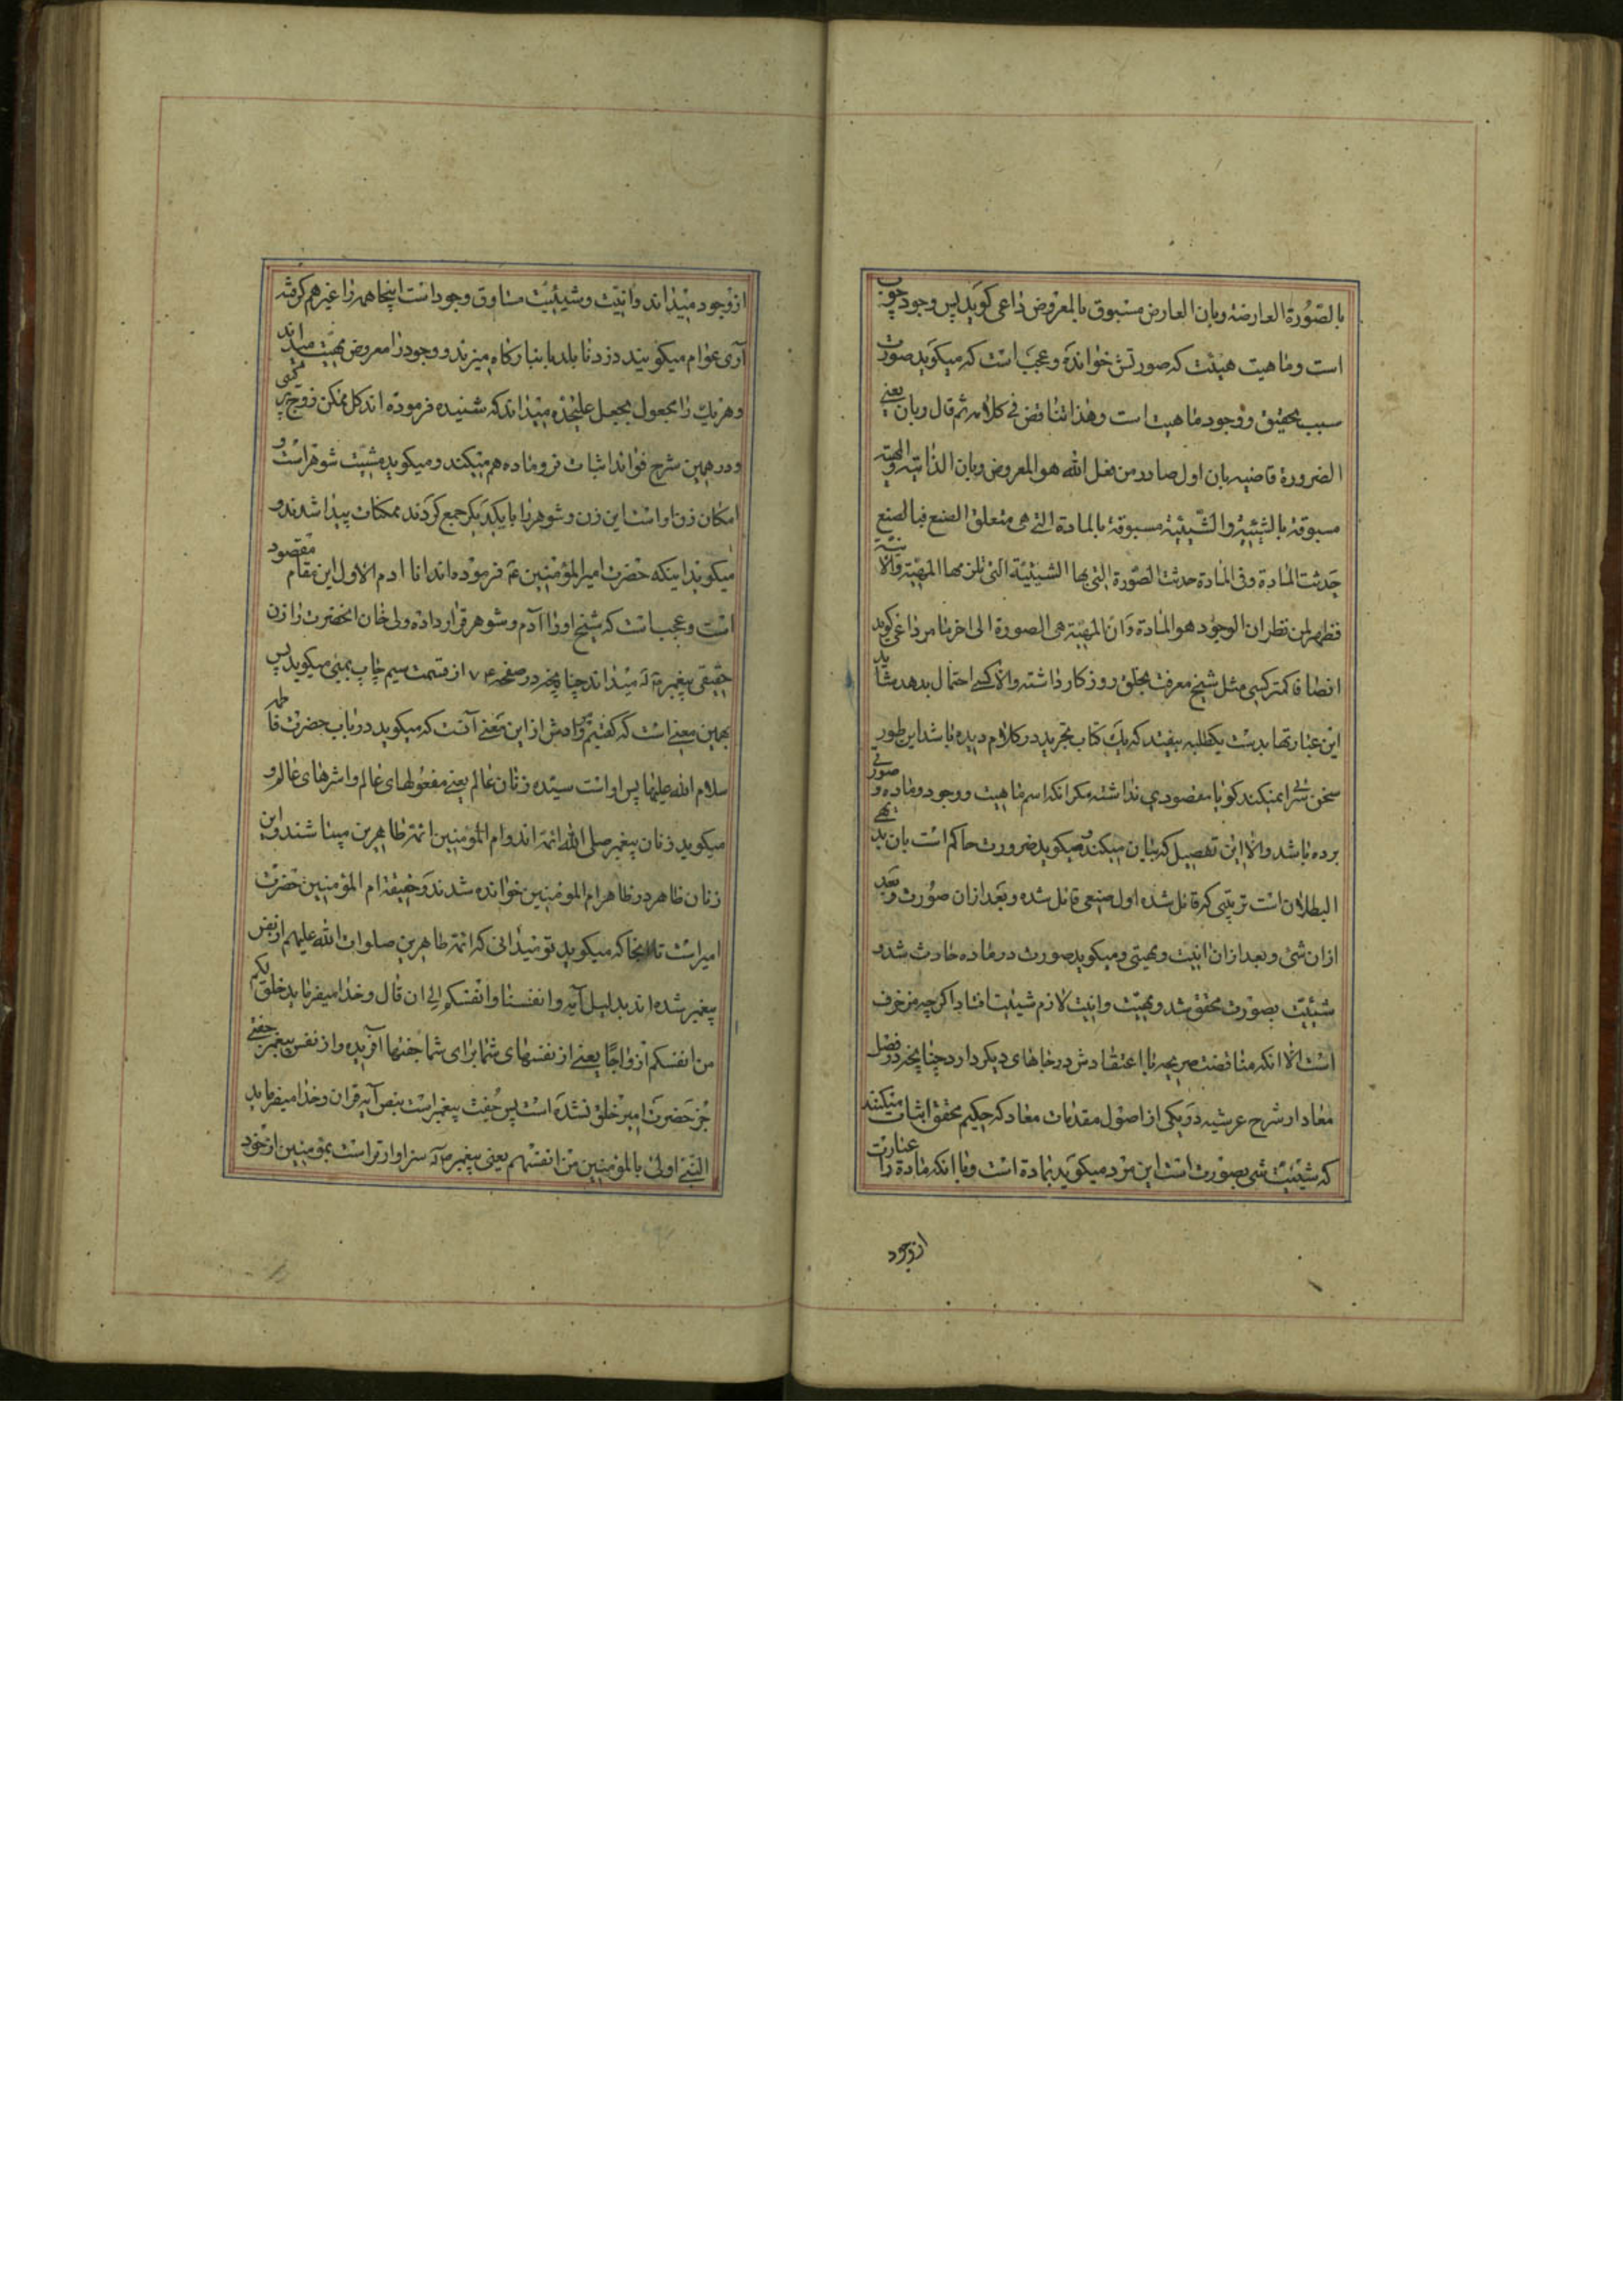 بالصّورة العارضة وبان العارض مسبوق بالمعروض داعی کوید پس وجود چوب
است وماهیت هیئت که صورتش خوانده وعجب است که میکوید صورت
سبب تحقیق ووجود ماهیت است وهذا تناقض فی کلامه ثم قال وبان یعنی
الضرورة قاضیه بان اول صادر من فعل الله هو المعروض وبان الذاتیه والمهیة
مسبوقة بالشیئیة والشیئیة مسبوقة بالمادة التی هی متعلق الصنع فبالصنع
حدثت المادة وفی المادة حدثت الصورة التی بها الشیئیة التی تلزمها المهیة والانیة
فظهر لمن نظر ان الوجود هو المادة وان المهیة هی الصورة الی اخر مامر داعی کوید
انصافا کمتر کسی مثل شیخ معرفت بخلق روزکار داشته والا کسی احتمال بدهد شاید
این عبارتها بدست یکطلبه بیفتد که یک کتاب تجرید در کلام دیده باشد این طور
سخن سرائی نمیکند کویا مقصودی نداشته مکر انکه اسم ماهیت ووجود وماده وصورتی
برده باشد والا این تفصیل که بیان میکند ومیکوید ضرورت حاکم است بان بدیهی
البطلان است ترتیبی که قائل شده اول صنعی قائل شده وبعد ازان صورت وبعد
ازان شیء وبعد ازان انیت ومهیتی ومیکوید صورت در ماده حادث شد و
شیئیت بصورت محقق شد ومهیت وانیت لازم شیئیت افتاد اکرچه مزخرف
است الا انکه مناقضت صریحه با اعتقادش در جاهای دیکر دارد چنانچه در فصل
معاد از شرح عرشیه در یکی از اصول مقدمات معاد که حکیم محقق اثبات میکند
که شیئیت شیء بصورت است این مرد میکوید بماده است وباانکه ماده را عبارت
ازوجود
ازوجود میداند وانیت وشیئیت مساوق وجود است اینجا همه را غیر هم کرفته
آری عوام میکویند دزد نابلد بانبار کاه میزند ووجود را معروض مهیت میداند
وهر یک را مجعول بجعل علیحده میداند که شنیده فرموده اند کل ممکن زوج ترکیبی
ودر همین شرح فوائد اثبات نر وماده هم میکند ومیکوید مشیت شوهر است و
امکان زن اوست این زن وشوهر را بایکدیکر جمع کردند ممکنات پیدا شدند و
میکوید اینکه حضرت امیرالمؤمنین ع فرموده اند انا ادم الاول این مقام مقصود
است وعجب است که شیخ اورا آدم وشوهر قرار داده ولی خان انحضرت را زن
حقیقی پیغمبر ص میداند چنانچه در صفحه ۷۴ از قسمت سیم چاپ بمبئی میکوید پس
بهمین معنی است که کفتیم ومرادش از این معنی آنست که میکوید در باب حضرت فاطمه
سلام الله علیها پس اوست سیده زنان عالم یعنی مفعولهای عالم واشرهای عالم و
میکوید زنان پیغمبر صلی الله ائمه اند وام المؤمنین ائمه طاهرین میباشند واین
زنان ظاهر در ظاهر ام المومنین خوانده شدند وحقیقة ام المؤمنین حضرت
امیر است تا انجا که میکوید تو نمیدانی که ائمه طاهرین صلوات الله علیهم از نفس
پیغمبر شده اند بدلیل آیه وانفسنا وانفسکم الی ان قال وخدا میفرماید خلق لکم
من انفسکم ازواجًا یعنی از نفسهای شما برای شما جفتها آفریده واز نفس پیغمبر جفتی
جز حضرت امیر خلق نشده است پس جفت پیغمبر است بنص آیه قران وخدا میفرماید
النبی اولی بالمؤمنین من انفسهم یعنی پیغمبر ص سزاوارتر است بمؤمنین از خود